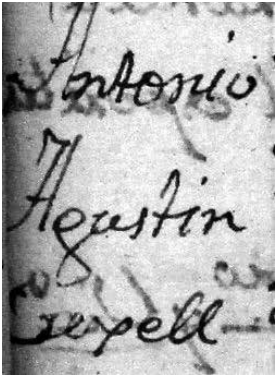 Antonio
Agustin
Crexell